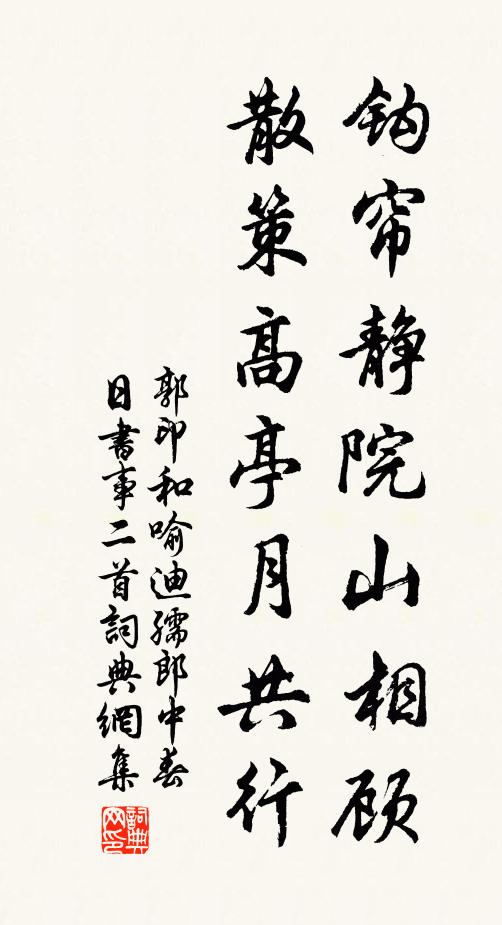 钩帘静院山相顾
散策高亭月共行
郭印和喻迪孺郎中春
日書事二首詞典網集
詞典
网印